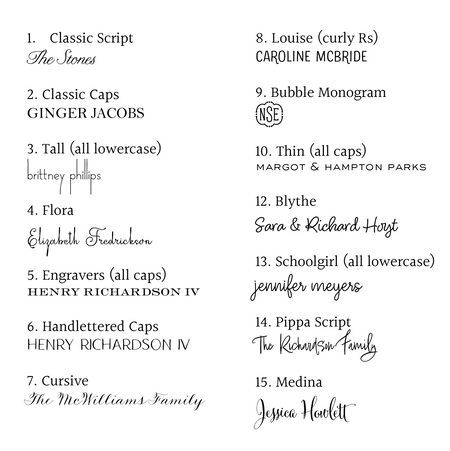 1. Classic Script
The Stones
2. Classic Caps
GINGER JACOBS
3. Tall (all lowercase)
brittney phillips
4. Flora
Elizabeth Fredrickson
5. Engravers (all caps)
HENRY RICHARDSON IV
6. Handlettered Caps
HENRY RICHARDSON IV
7. Cursive
The McWilliams Family
8. Louise (curly Rs)
CAROLINE MCBRIDE
9. Bubble Monogram
NSE
10. Thin (all caps)
MARGOT & HAMPTON PARKS
12. Blythe
Sara & Richard Hoyt
13. Schoolgirl (all lowercase)
jennifer meyers
14. Pippa Script
The Richardson Family
15. Medina
Jessica Howlett